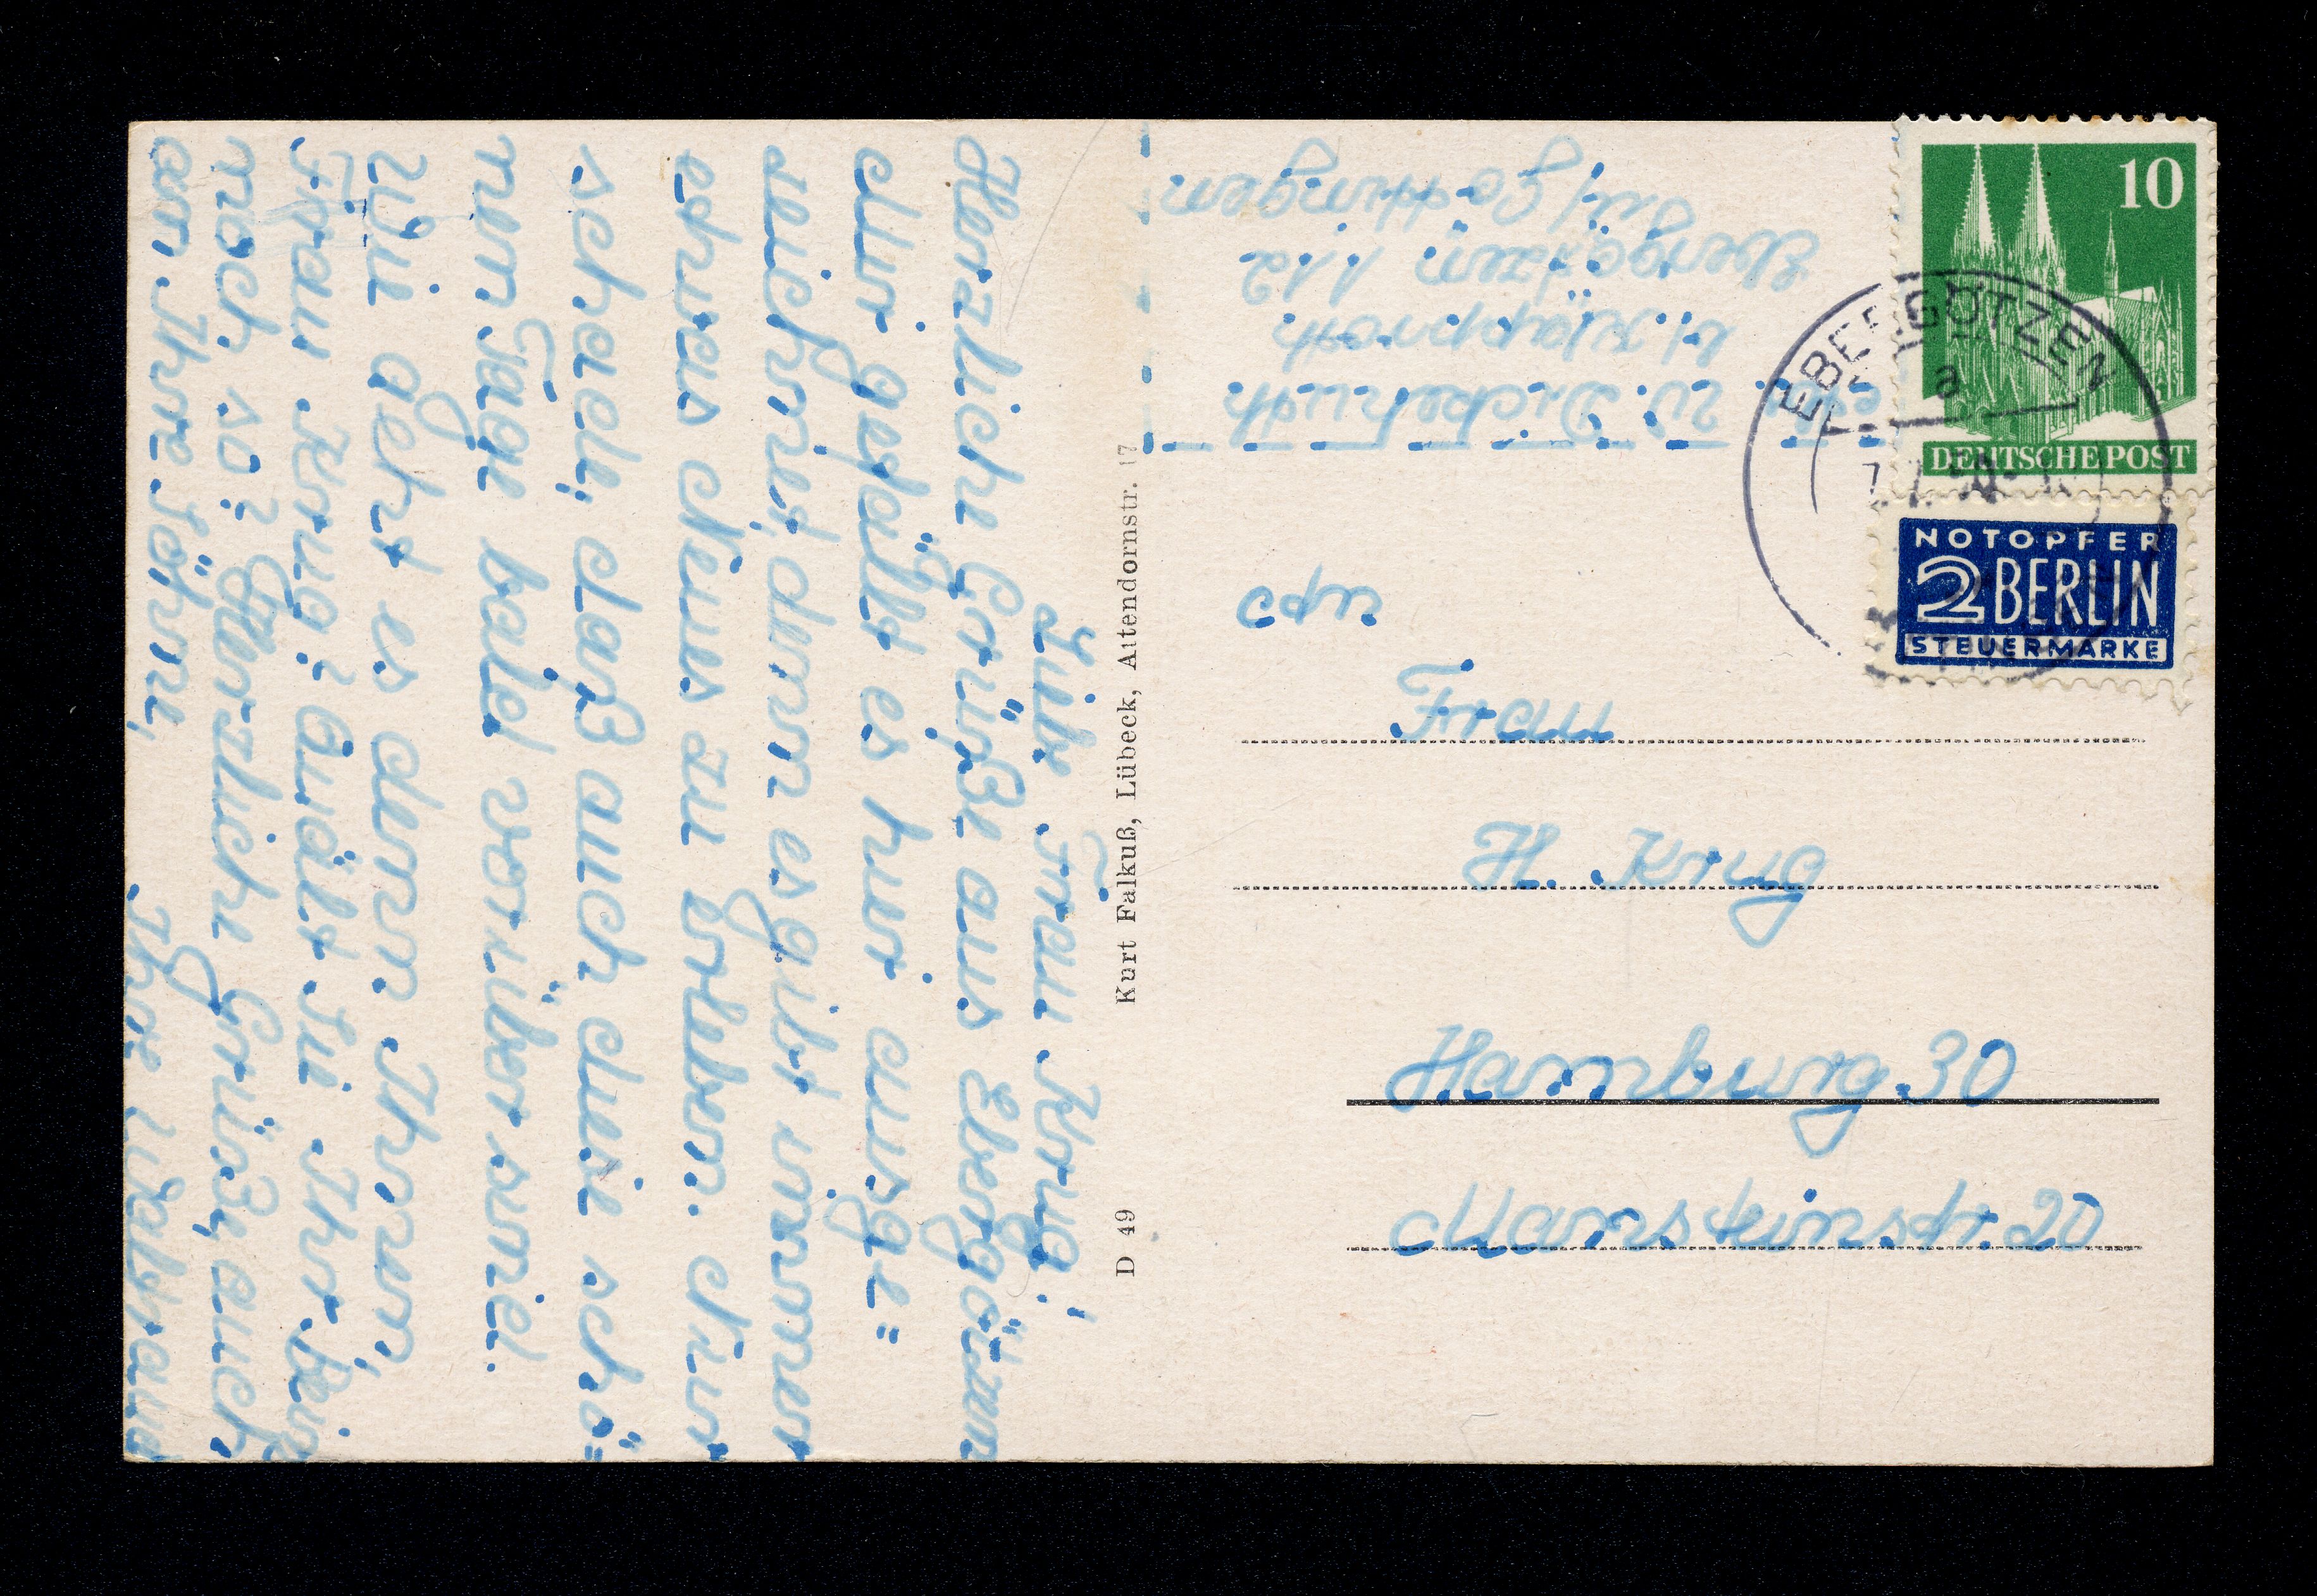 Liebe Frau Krug!
Herzliche Grüße aus Ebergötzen
Mir gefällt es hier ausge=
zeichnet, denn es gibt immer
etwas Neues zu erleben. Nur
schade, daß auch diese schö=
nen Tage bald vorüber sind.
Wie geht es denn Ihnen,
Frau Krug? Quält Sie Ihr Bein
noch so? Herzliche Grüße, auch
an Ihre Söhne,
Ihre Waltraud
D 49 Kurt Falkuß, Lübeck, Attendornstr. 17
W. Dickehuth
Ebergötzen 112
über Göttingen
10
DEUTSCHE POST
EBERGÖTZEN
a
NOTOPFER
2 BERLIN
STEUERMARKE
Frau
H. Krug
Hamburg 30
Mansteinstr. 20